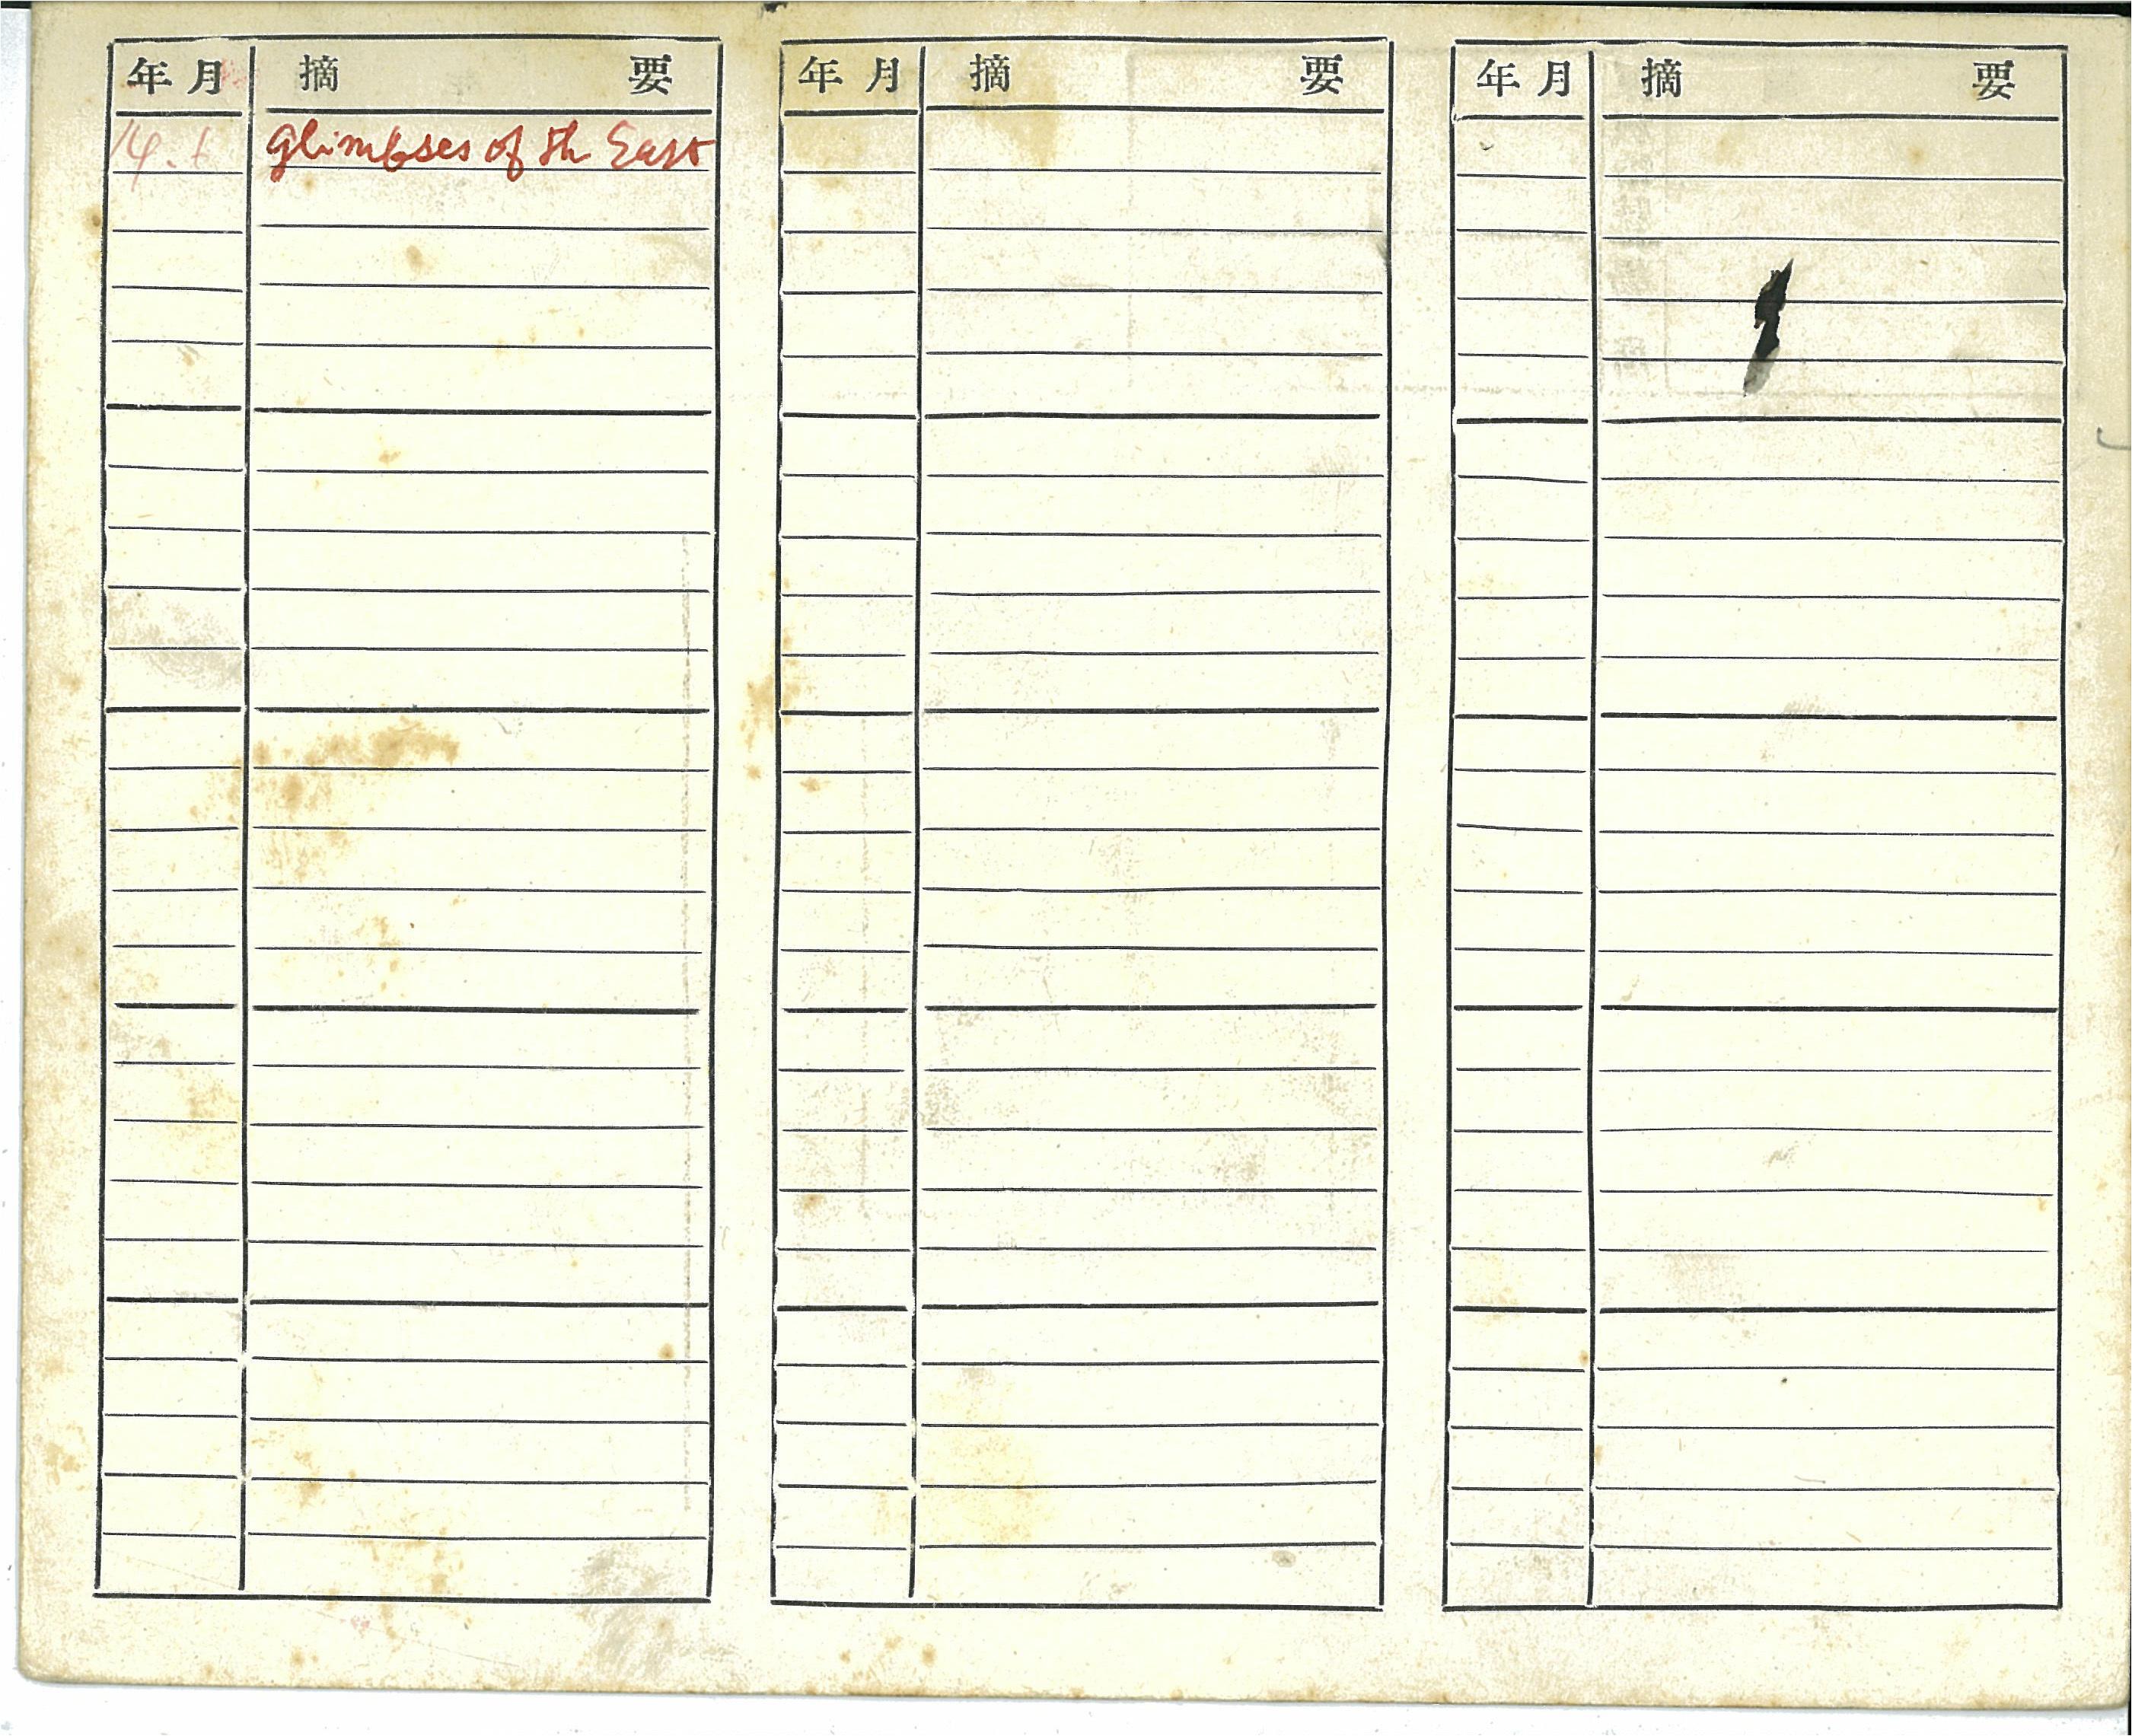 年月 摘要 年月 摘要 年月 摘要
14.6 Glimpses of the East